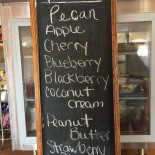 Pecan
Apple
Cherry
Blueberry
Blackberry
Coconut
Cream
Peanut
Butter
Strawberry